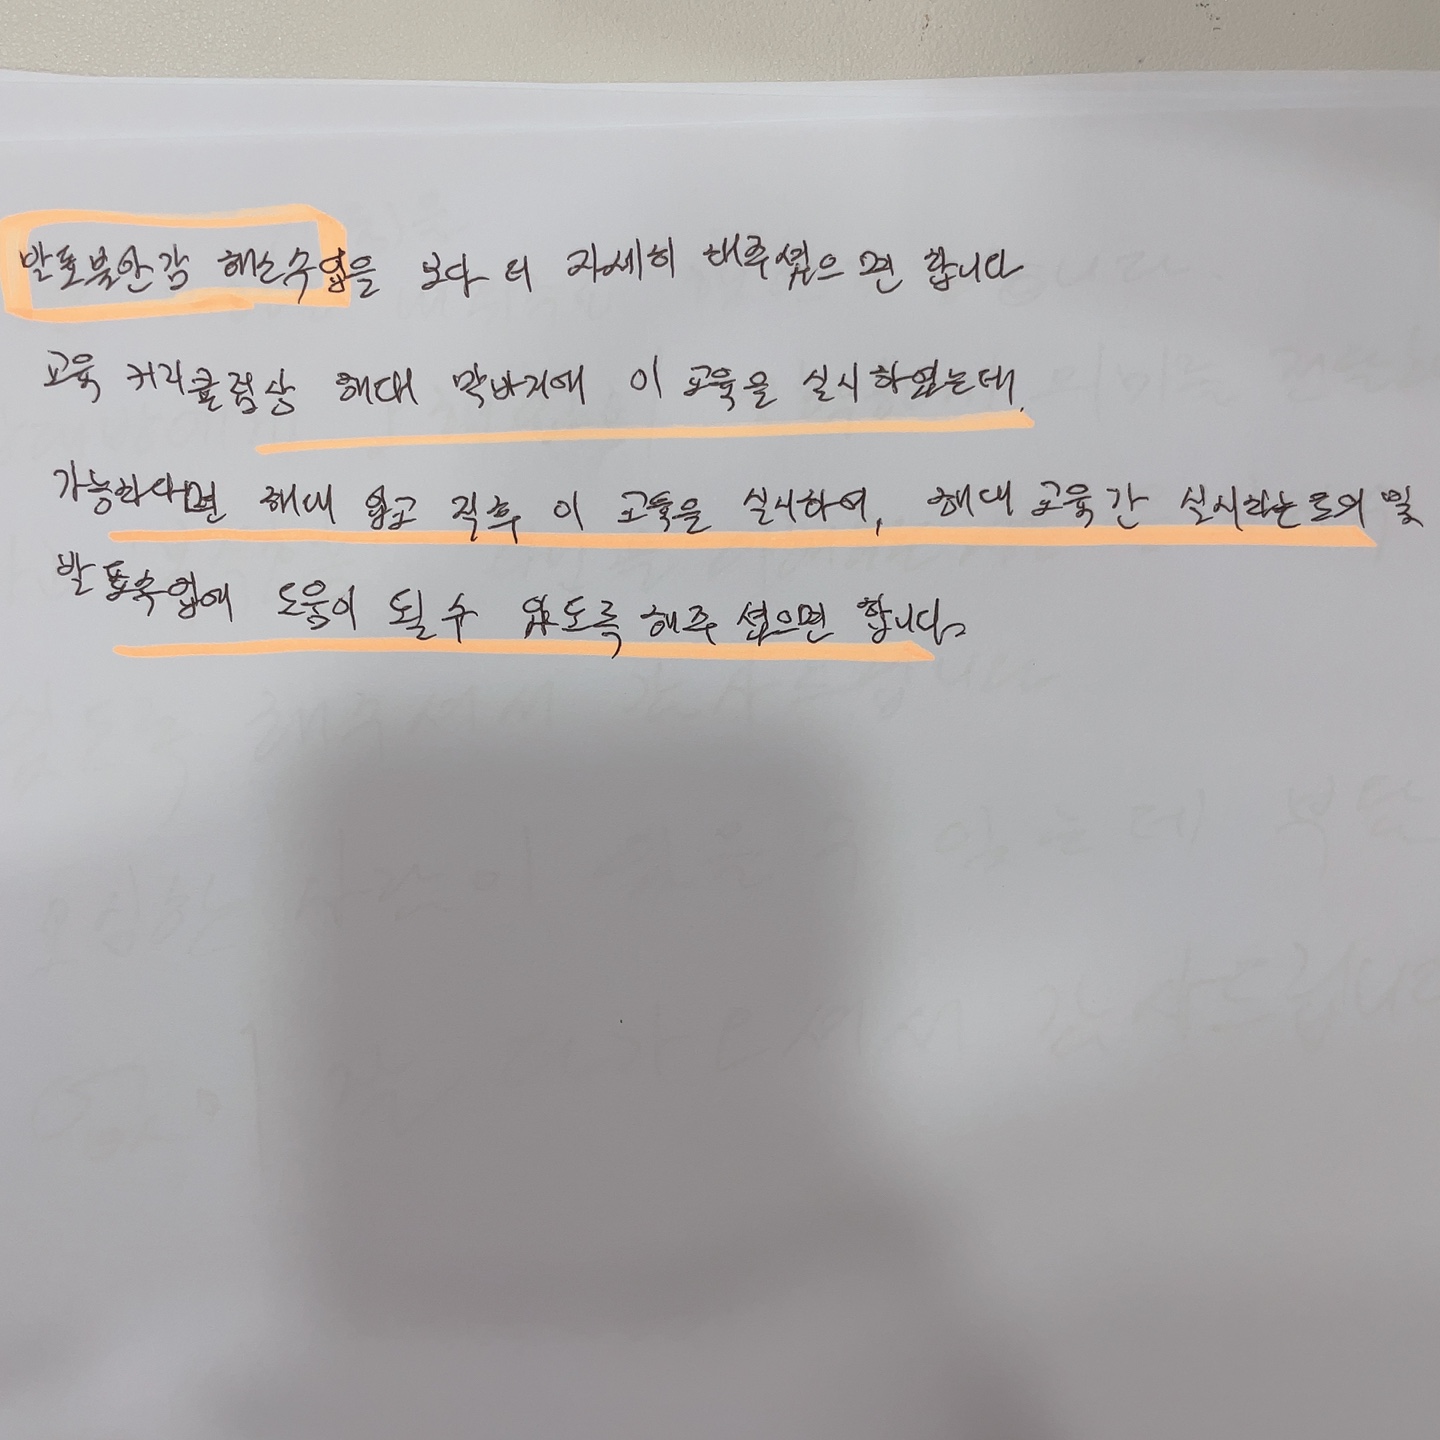 발표불안감 해소수업을 보다 더 자세히 해주셨으면 합니다
교육 커리큘럼상 해대 막바지에 이 교육을 실시하였는데,
가능하다면 해대 입교 직후 이 교육을 실시하여, 해대 교육간 실시하는 토의 및
발표수업에 도움이 될 수 있도록 해주셨으면 합니다.